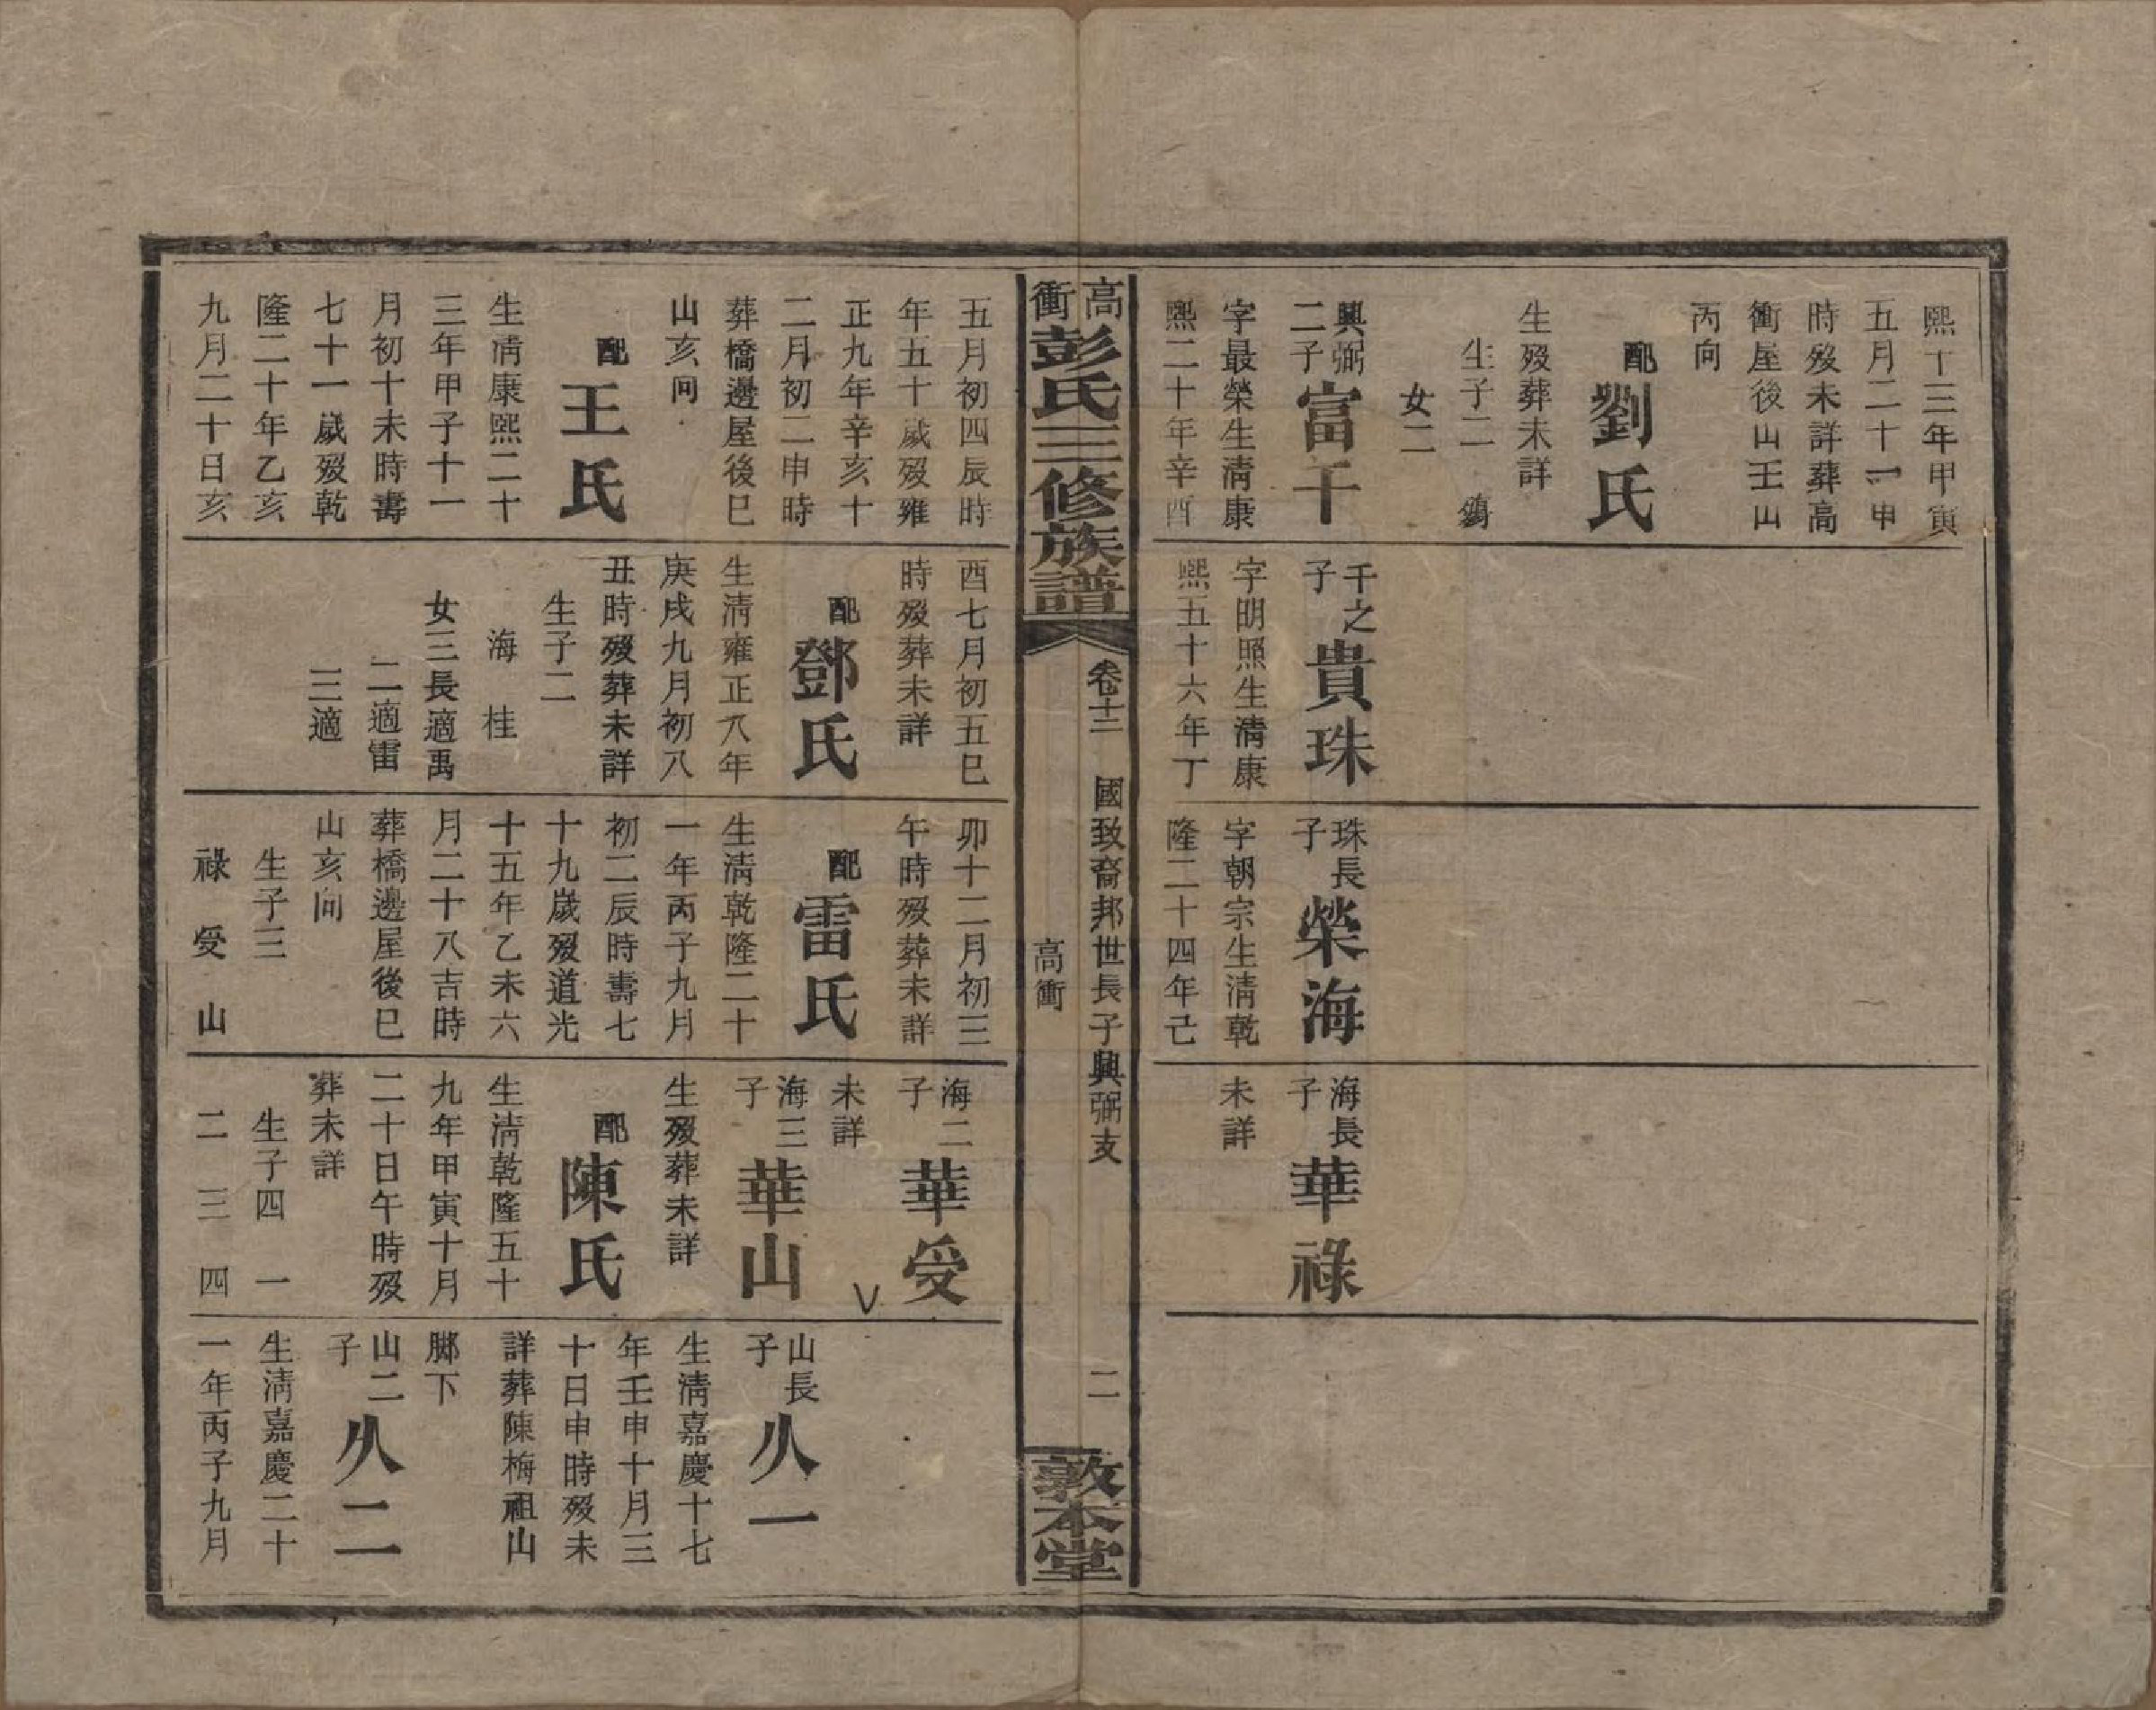 熙十三年甲寅
五月二十一申
時歿未詳葬高
衝屋後山壬山
丙向
配劉氏
生歿葬未詳
生子二
女二
興弼二子富千
字最榮生清康
熙二十年辛酉
千之子貴珠
字明照生清康
熙五十六年丁
珠長子榮海
字朝宗生清乾
隆二十四年己
海長子華祿
未詳
高衝彭氏三修族譜
卷十二
國致裔邦世長子興弼支
高衝
二
敦本堂
五月初四辰時
年五十歲歿雍
正九年辛亥十
二月初二申時
葬橋邊屋後巳
山亥向
配王氏
生清康熙二十
三年甲子十一
月初十未時壽
七十一歲歿乾
隆二十年乙亥
九月二十日亥
酉七月初五巳
時歿葬未詳
配鄧氏
生清雍正八年
庚戌九月初八
丑時歿葬未詳
生子二
海 桂
女三長適禹
二適雷
三適
卯十二月初三
午時歿葬未詳
配雷氏
生清乾隆二十
一年丙子九月
初二辰時壽七
十九歲歿道光
十五年乙未六
月二十八吉時
葬橋邊屋後巳
山亥向
生子三
祿 受 山
海二子華受
未詳
海三子華山
生歿葬未詳
配陳氏
生清乾隆五十
九年甲寅十月
二十日午時歿
葬未詳
生子四 一
二 三 四
山長子久一
生清嘉慶十七
年壬申十月三
十日申時歿未
詳葬陳梅祖山
脚下
山二子久二
生清嘉慶二十
一年丙子九月